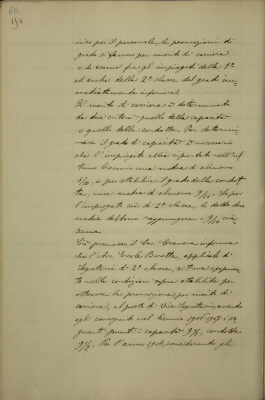 66.
154
nico per il personale, le promozioni di
grado si fanno per merito di carriera
o di esame fra gli impiegati della 1ª
ed anche della 2ª classe del grado im-
mediatamente inferiore.
Il merito di carriera è determinato
da due criteri: quello della capacità
e quello della condotta. Per determi-
nare il grado di capacità è necessario
che l'impiegato abbia riportato nell'ul-
timo biennio una media di almeno
9/10, e per stabilire il grado della condot-
ta, una media di almeno 9/10. Se poi
l'impiegato sia di 2ª classe, le dette due
medie debbono raggiungere i 9 1/2
Ciò premesso, il Sen. informa
che l'Avv. Ercole Boratto, applicato di
Segreteria di 2ª classe, si trova appun-
to nelle condizioni sopra stabilite per
ottenere la promozione per merito di
carriera, al grado di Vice Segretario, avendo
egli conseguito nel biennio 1906-1907 i se-
guenti punti: capacità 9 1/2, condotta
9 1/2. Per l'anno 1908, considerato gli